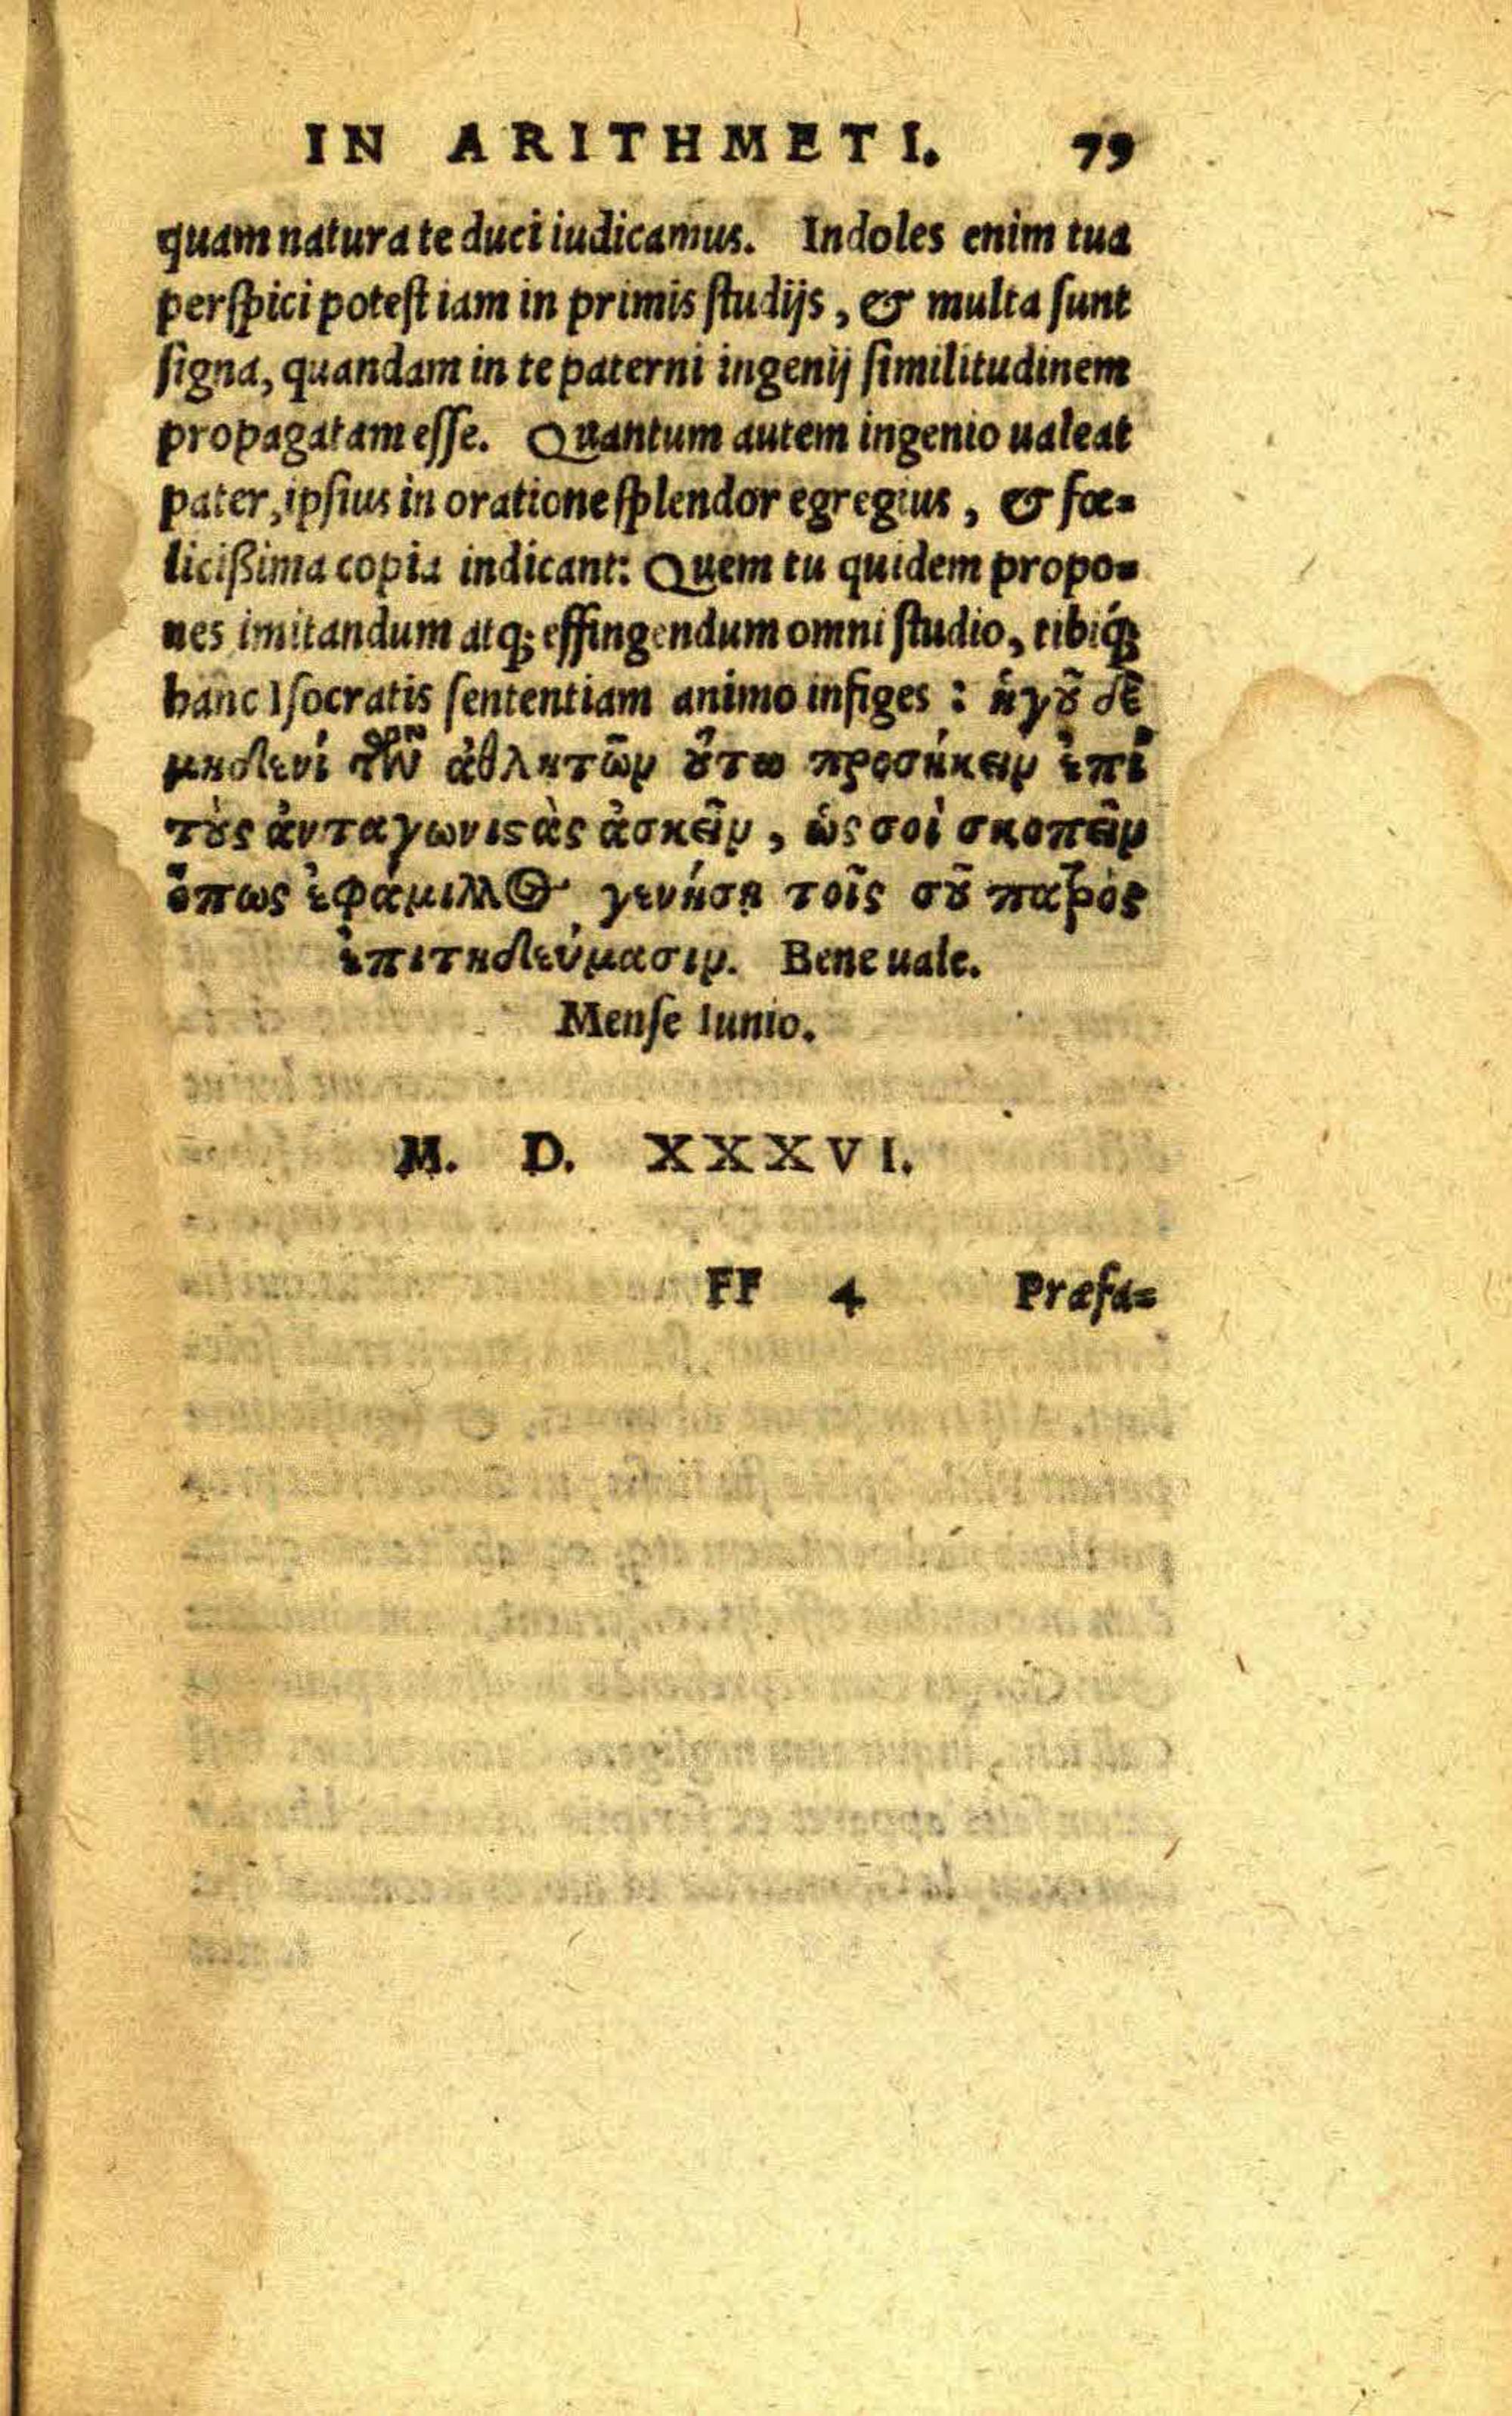 IN ARITHMETI. 79
quam natura te duci iudicamus. Indoles enim tua
perſpici poteſt iam in primis ſtudijs, & multa ſunt
ſigna, quandam in te paterni ingenij ſimilitudinem
propagatam eſſe. Quantum autem ingenio ualeat
pater, ipſius in oratione ſplendor egregius, & fœ=
licißima copia indicant: Quem tu quidem propo=
nes imitandum atq; effingendum omni ſtudio, tibiq́;
hanc Iſocratis ſententiam animo infiges : ἡγοῦ δὲ
μηδενὶ τῶν ἀθλητῶν οὕτω προσήκειν ἐπὶ
τοὺς ἀνταγωνιστὰς ἀσκεῖν, ὡς σοὶ σκοπεῖν
ὅπως ἐφάμιλλος γενήσῃ τοῖς σοῦ πατρὸς
ἐπιτηδεύμασιν. Bene uale.
Menſe Iunio.
M. D. XXXVI.
FF 4 Præfa=